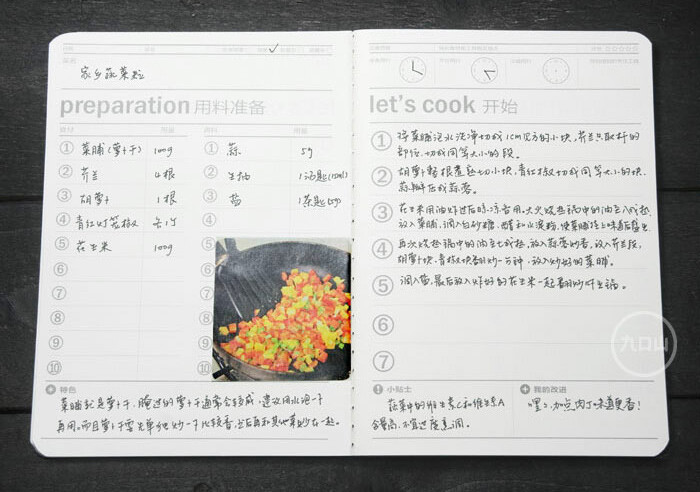 家乡蔬菜粒
preparation 用料准备
① 菜脯(萝卜干) 100g
② 芥兰 4根
③ 胡萝卜 1根
④ 青红灯笼椒 各½
⑤ 花生米 100g
⑥
⑦
⑧
⑨
⑩
① 蒜 5g
② 生抽 1汤匙(15ml)
③ 盐 1茶匙(5g)
④
⑤
⑩
特色
菜脯就是萝卜干,腌过的萝卜干通常会较咸,建议用水泡一下
再用。而且萝卜干需先单独炒一下比较香,然后再和其他菜炒在一起。
let's cook 开始
① 将菜脯泡水洗净切成1cm见方的小块,芥兰只取杆的
部位,切成同等大小的段。
② 胡萝卜整根煮熟切小块,青红椒切成同等大小的块,
蒜瓣压成蒜蓉。
③ 花生米用油炸过后晾凉备用。大火烧热锅中的油至八成热,
放入菜脯,调入白砂糖,
④ 再次烧热锅中的油至七成热,放入蒜蓉炒香,放入芥兰段,
胡萝卜块,青椒块翻炒一分钟,放入炒好的菜脯。
⑤ 调入盐,最后放入炸好的花生米一起翻炒好出锅。
⑥
⑦
小贴士
蔬菜中的维生素C和维生素A
含量高,不宜过度烹调。
我的改进
嘿嘿,加点肉丁味道更香!
九口山